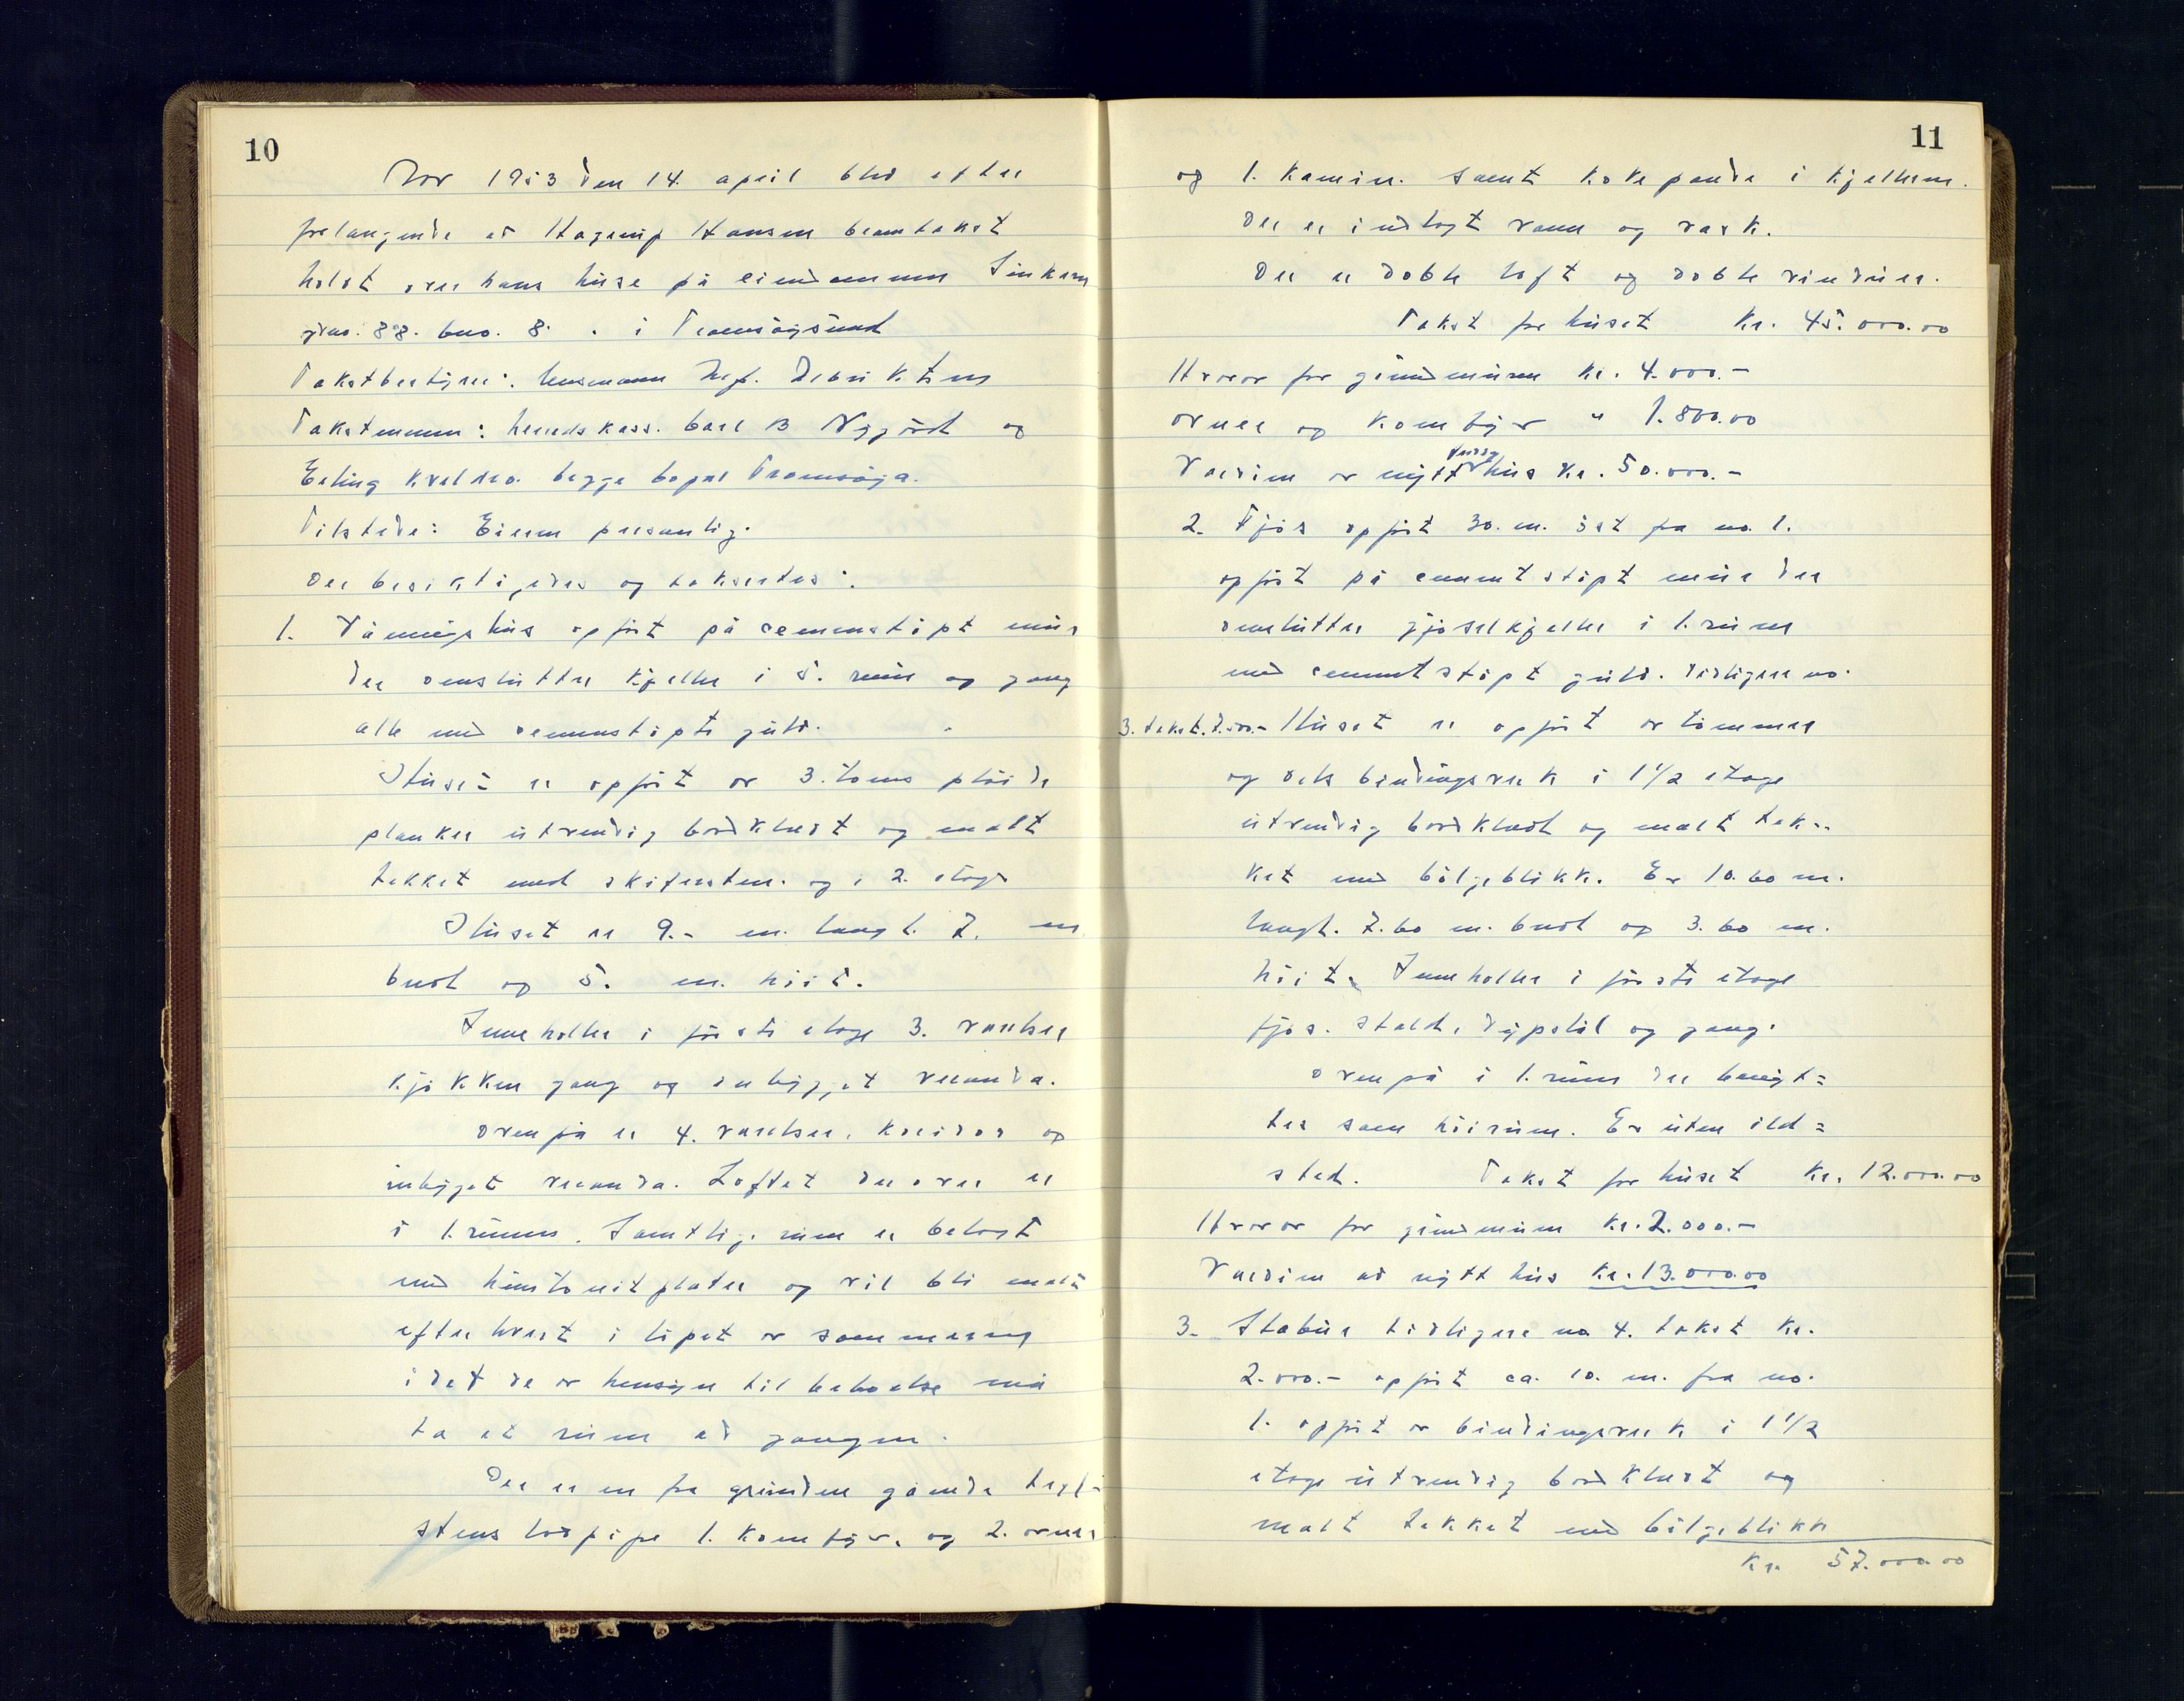 10
Aar 1953 den 14. april blev efter
forlangende av Hagerup Hansen branntakst
holdt over hans huse på eiendommen
gno. 88. bno. 8. i Tromsöysund
Takstbestyrer: lensmann
Takstmenn: herredskass. Carl B Nygård og
Erling begge bopel Tromsöya.
Tilstede: Eieren personlig.
Der besiktigedes og taksertes:
1. Våningshus opfört på cementstöpt mur
der omslutter kjeller i 5. rum og gang
alle med cementstöpt gulv.
Huset er opfört av 3. toms plöide
planker utvendig bordklædt og malt
tekket med skifersten. og i 2. etage
Huset er 9.- m. langt. 7. m
bredt og 5. m. höit.
Inneholder i förste etage 3. værelser
kjökken gang og inbygget veranda.
Ovenpå er 4. værelser, koridor og
inbyget veranda. Loftet derover er
i 1. rum. Samtlige rum er belagt
med huntonitplater og vil bli malt
efterhvert i löpet av sommeren
idet de av hensyn til beboelse må
ta et rum ad gangen.
Der er en fra grunden gående tegl-
stens lodpipe 1. komfyr. og 2. ovner
11
og 1. kamin. samt kokepande i kjelleren.
Der er indlagt vann og vask.
Der er doble loft og doble vinduer.
Takst for huset Kr. 45.000.00
Hvorav for grundmuren Kr. 4.000.-
ovner og komfyr " 1.800.00
Verdien av nytt hus Kr. 50.000.-
2. Fjös opfört 30. m. öst fra no. 1.
opfört på cementstöpt mur der
omslutter gjöselkjeller i 1. rum
med cementstöpt gulv. Tidligere no.
3. takst. 7.500.- Huset er opfört av tömmer
og dels bindingsverk i 1 1/2 etage
utvendig bordklædt og malt tek-
ket med bölgeblikk. Er 10.60 m.
langt. 7.60 m. bredt og 3.60 m.
höit. Inneholder i förste etage
fjös. stald, og gang.
Ovenpå i 1. rum der benyt=
tes som höirum. Er uten ild=
sted. Takst for huset Kr. 12.000.00
Hvorav for grundmuren Kr. 2.000.-
Verdien av nytt hus Kr. 13.000.00
3. Stabur tidligere no 4. takst Kr.
2.000.- opfört ca. 10. m. fra no.
1. opfört av bindingsverk i 1 1/2
etage utvendig bordklædt og
malt tekket med bölgeblikk
Kr. 57.000.00